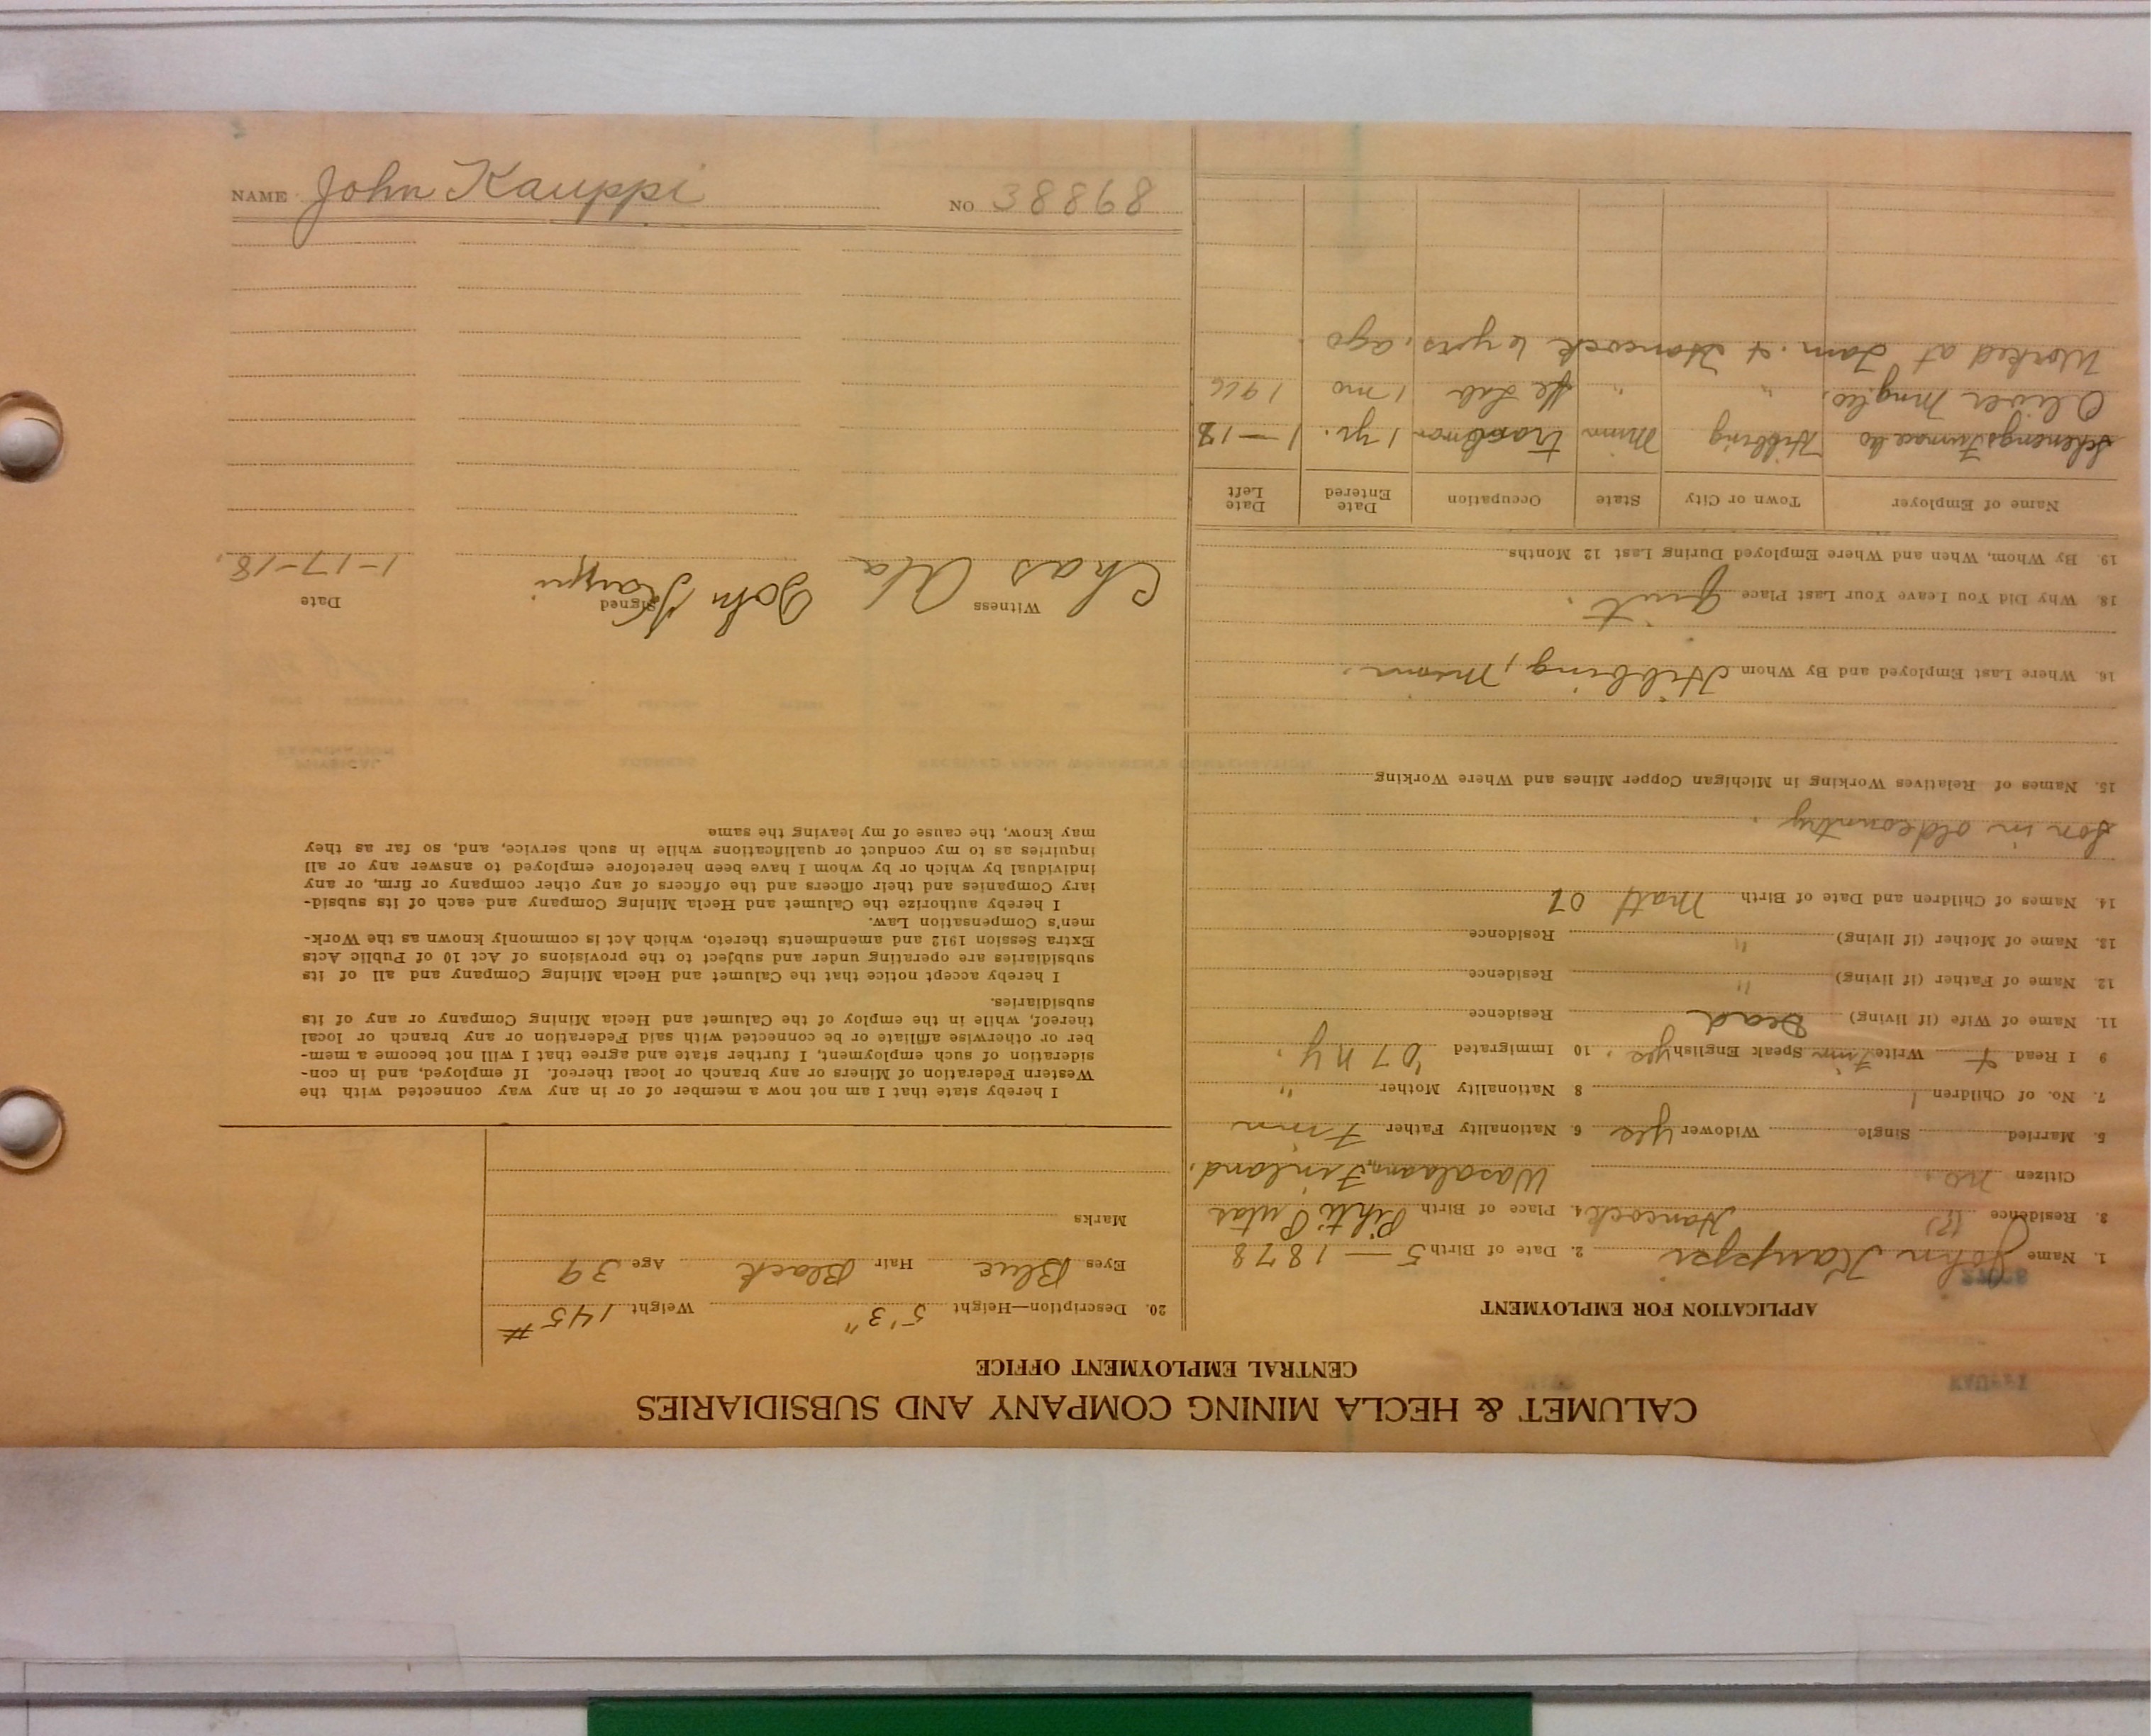 CALUMET & HECLA MINING COMPANY AND SUBSIDIARIES
CENTRAL EMPLOYMENT OFFICE
APPLICATION FOR EMPLOYMENT
1. Name John Kauppi 2. Date of Birth 5 — 1878
3. Residence Hancock 4. Place of Birth
Citizen no. Finland.
5. Married Single Widower yes 6. Nationality Father Finn
7. No. of Children 1 8 Nationality Mother "
9 I Read + Write Finn Speak English yes. 10 Immigrated '07 N Y.
11. Name of Wife (if living) Dead Residence
12. Name of Father (if living) " Residence
13. Name of Mother (if living) " Residence
14. Names of Children and Date of Birth Matt 07
Son in old country.
15. Names of Relatives Working in Michigan Copper Mines and Where Working
16. Where Last Employed and By Whom Hibbing, Minn.
18. Why Did You Leave Your Last Place quit.
19. By Whom, When and Where Employed During Last 12 Months
Name of Employer Town or City State Occupation Date Entered Date Left
Furnace Co Hibbing Minn 1 yr. 1—18
Oliver Mng. Co. " " 1 mo 1916
Worked at Tam. + Hancock 6 yrs. ago
20. Description—Height 5'3" Weight 145 #
Eyes Blue Hair Black Age 39
Marks
I hereby state that I am not now a member of or in any way connected with the
Western Federation of Miners or any branch or local thereof. If employed, and in con-
sideration of such employment, I further state and agree that I will not become a mem-
ber or otherwise affiliate or be connected with said Federation or any branch or local
thereof, while in the employ of the Calumet and Hecla Mining Company or any of its
subsidiaries.
I hereby accept notice that the Calumet and Hecla Mining Company and all of its
subsidiaries are operating under and subject to the provisions of Act 10 of Public Acts
Extra Session 1912 and amendments thereto, which Act is commonly known as the Work-
men's Compensation Law.
I hereby authorize the Calumet and Hecla Mining Company and each of its subsid-
iary Companies and their officers and the officers of any other company or firm, or any
individual by which or by whom I have been heretofore employed to answer any or all
inquiries as to my conduct or qualifications while in such service, and, so far as they
may know, the cause of my leaving the same
Witness Signed Date
Chas Ala John Kauppi 1-17-18.
NAME John Kauppi NO. 38868